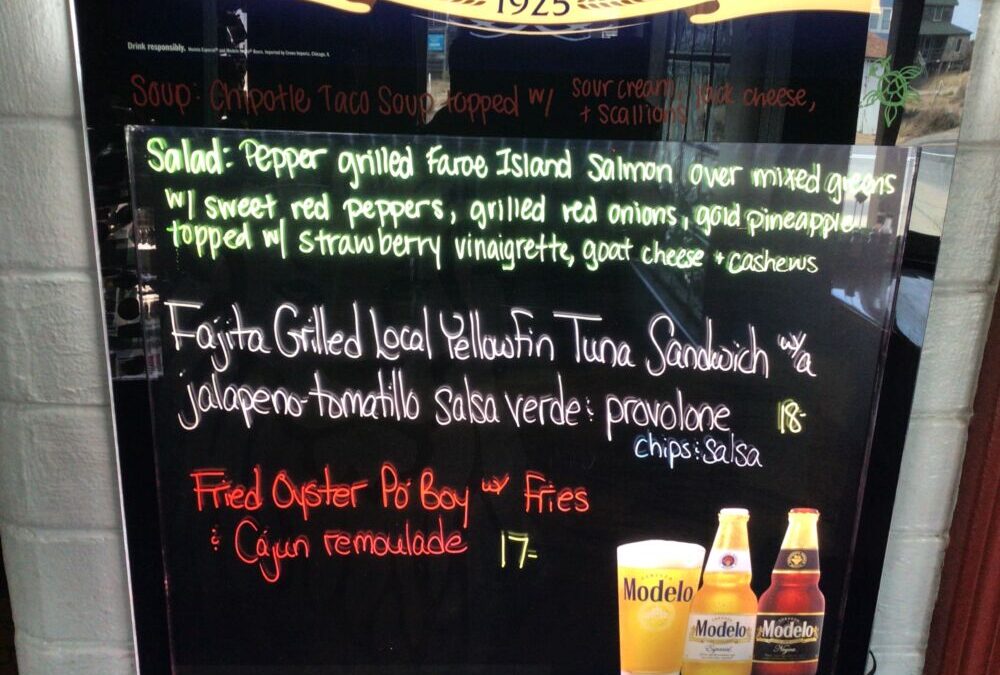 1925
Drink responsibly. Modelo Especial® and Modelo Negra® Beers. Imported by Crown Imports, Chicago, IL
Soup: Chipotle Taco Soup topped w/ sour cream, Jack cheese,
+ scallions
Salad: Pepper grilled Faroe Island Salmon over mixed greens
w/ sweet red peppers, grilled red onions, gold pineapple
topped w/ strawberry vinaigrette, goat cheese + cashews
Fajita Grilled Local Yellowfin Tuna Sandwich w/ a
jalapeno-tomatillo salsa verde & provolone 18-
chips & salsa
Fried Oyster Po' Boy w/ Fries
& Cajun remoulade 17-
Modelo
Modelo
Especial
Modelo
Negra